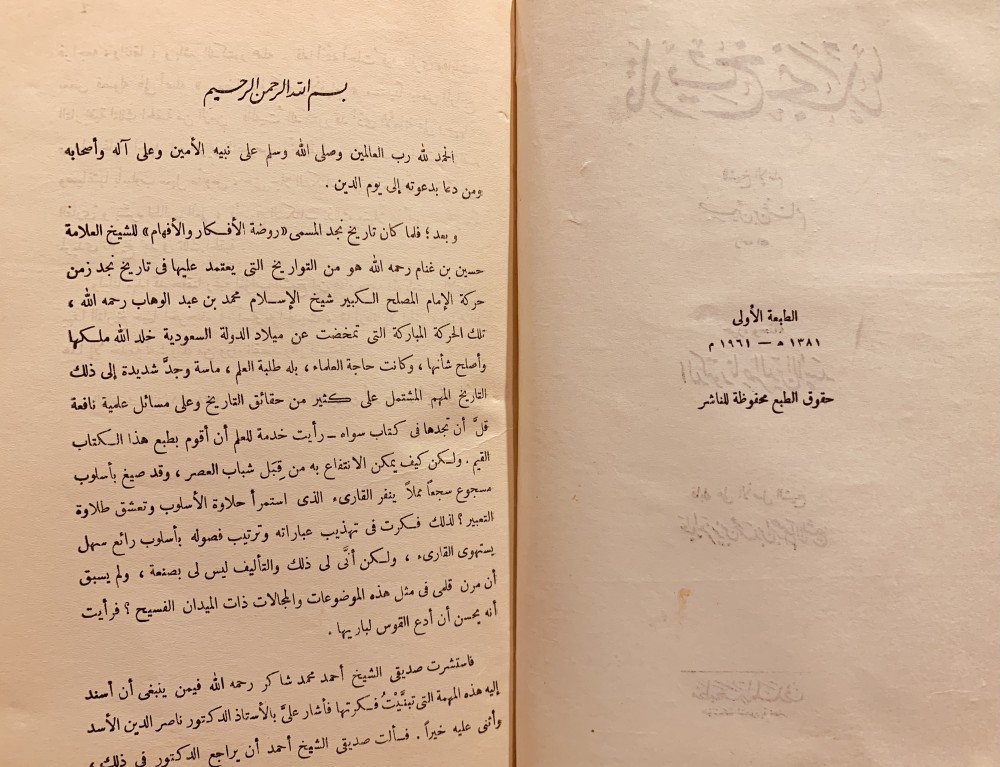 الطبعة الأولى
١٣٨١ هـ — ١٩٦١ م
حقوق الطبع محفوظة للناشر
بسم الله الرحمن الرحيم
الحمد لله رب العالمين وصلى الله وسلم على نبيه الأمين وعلى آله وأصحابه
ومن دعا بدعوته إلى يوم الدين .
وبعد ؛ فلما كان تاريخ نجد المسمى «روضة الأفكار والأفهام» للشيخ العلامة
حسين بن غنام رحمه الله هو من التواريخ التى يعتمد عليها فى تاريخ نجد زمن
حركة الإمام المصلح الكبير شيخ الإسلام محمد بن عبد الوهاب رحمه الله ،
تلك الحركة المباركة التى تمخضت عن ميلاد الدولة السعودية خلد الله ملكها
وأصلح شأنها ، وكانت حاجة العلماء ، بله طلبة العلم ، ماسة وجدَّ شديدة إلى ذلك
التاريخ المهم المشتمل على كثير من حقائق التاريخ وعلى مسائل علمية نافعة
قلَّ أن تجدها فى كتاب سواه – رأيت خدمة للعلم أن أقوم بطبع هذا الكتاب
القيم . ولكن كيف يمكن الانتفاع به من قِبَل شباب العصر ، وقد صيغ بأسلوب
مسجوع سجعاً مملاً ينفر القارىء الذى استمرأ حلاوة الأسلوب وتعشق طلاوة
التعبير ؟ لذلك فكرت فى تهذيب عباراته وترتيب فصوله بأسلوب رائع سهل
يستهوى القارىء ، ولكن أنَّى لى ذلك والتأليف ليس لى بصنعة ، ولم يسبق
أن مرن قلمى فى مثل هذه الموضوعات والمجالات ذات الميدان الفسيح ؟ فرأيت
أنه يحسن أن أدع القوس لباريها .
فاستشرت صديقى الشيخ أحمد محمد شاكر رحمه الله فيمن ينبغى أن أسند
إليه هذه المهمة التى تبنَّيْتُ فكرتها فأشار علىَّ بالأستاذ الدكتور ناصر الدين الأسد
وأثنى عليه خيراً . فسألت صديقى الشيخ أحمد أن يراجع الدكتور فى ذلك ،